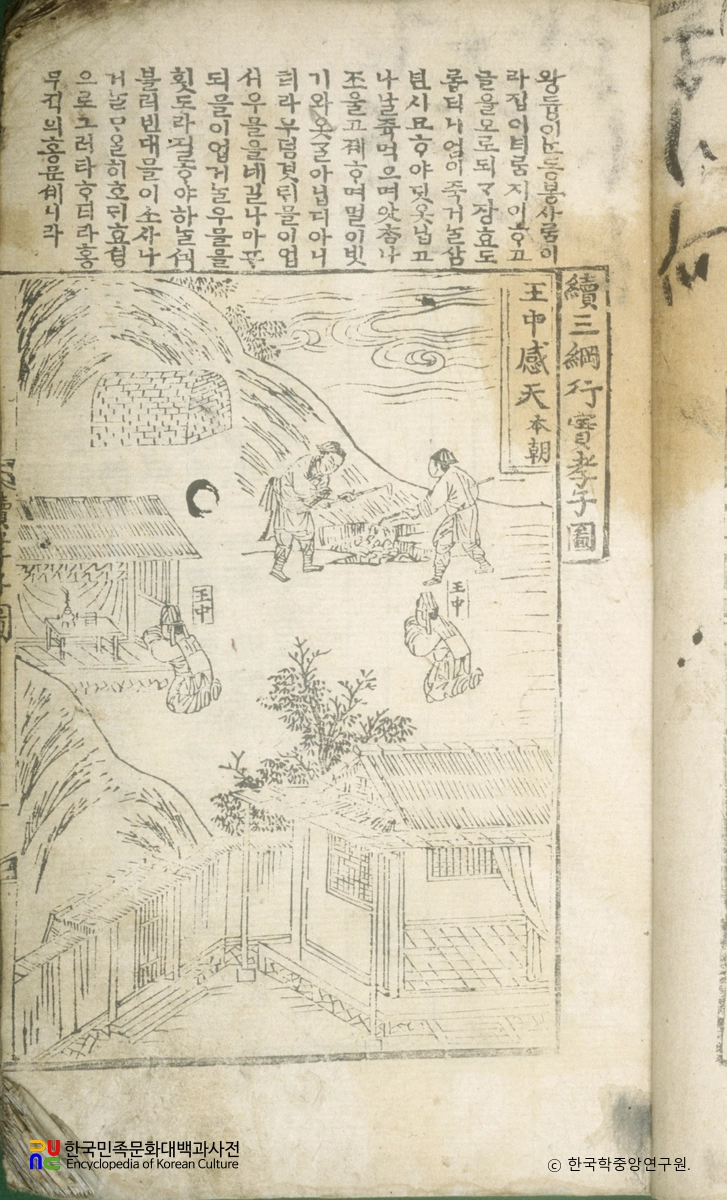 續三綱行實孝子圖
王中感天 本朝
왕듕이ᄂᆞᆫ등봉사ᄅᆞᆷ이
라집이터룸지이ᄒᆞ고
글을모로되ᄀᆞ장효도
롭더니어미죽거ᄂᆞᆯ삼
년시묘ᄒᆞ야뎟옷닙고
나날쥭먹으며앗ᄎᆞᆷ나
조울고졔ᄒᆞ며멀이빗
기와옷ᄀᆞᆯ아닙디아니
터라무덤겻틔믈이업
서우믈을네길나마ᄑᆞ
되믈이업거ᄂᆞᆯ우믈을
횟도라졀ᄒᆞ야하ᄂᆞᆯᄭᅴ
블러빈대믈이소사나
거ᄂᆞᆯᄆᆞᄋᆞᆯ히호ᄃᆡ효형
으로그러타ᄒᆞ더라홍
무적의홍문셰니라
王中
王中
한국민족문화대백과사전
Encyclopedia of Korean Culture
ⓒ 한국학중앙연구원.